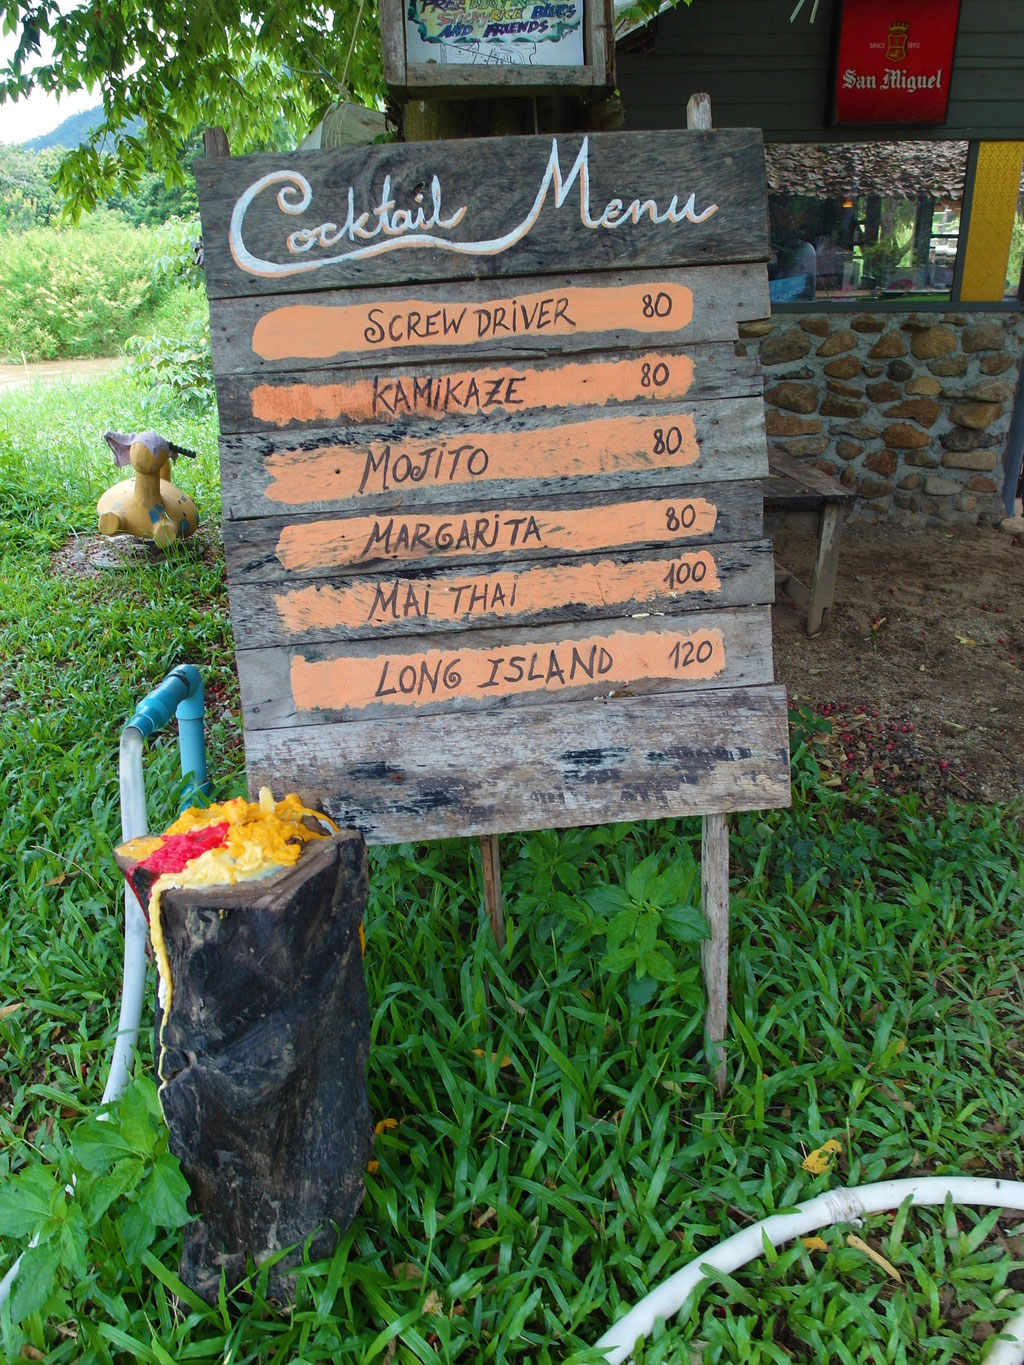 FREE
STICKYRICE BLUES
AND FRIENDS
SINCE 1890
San Miguel
Cocktail Menu
SCREW DRIVER 80
KAMIKAZE 80
MOJITO 80
MARGARITA 80
MAI THAI 100
LONG ISLAND 120